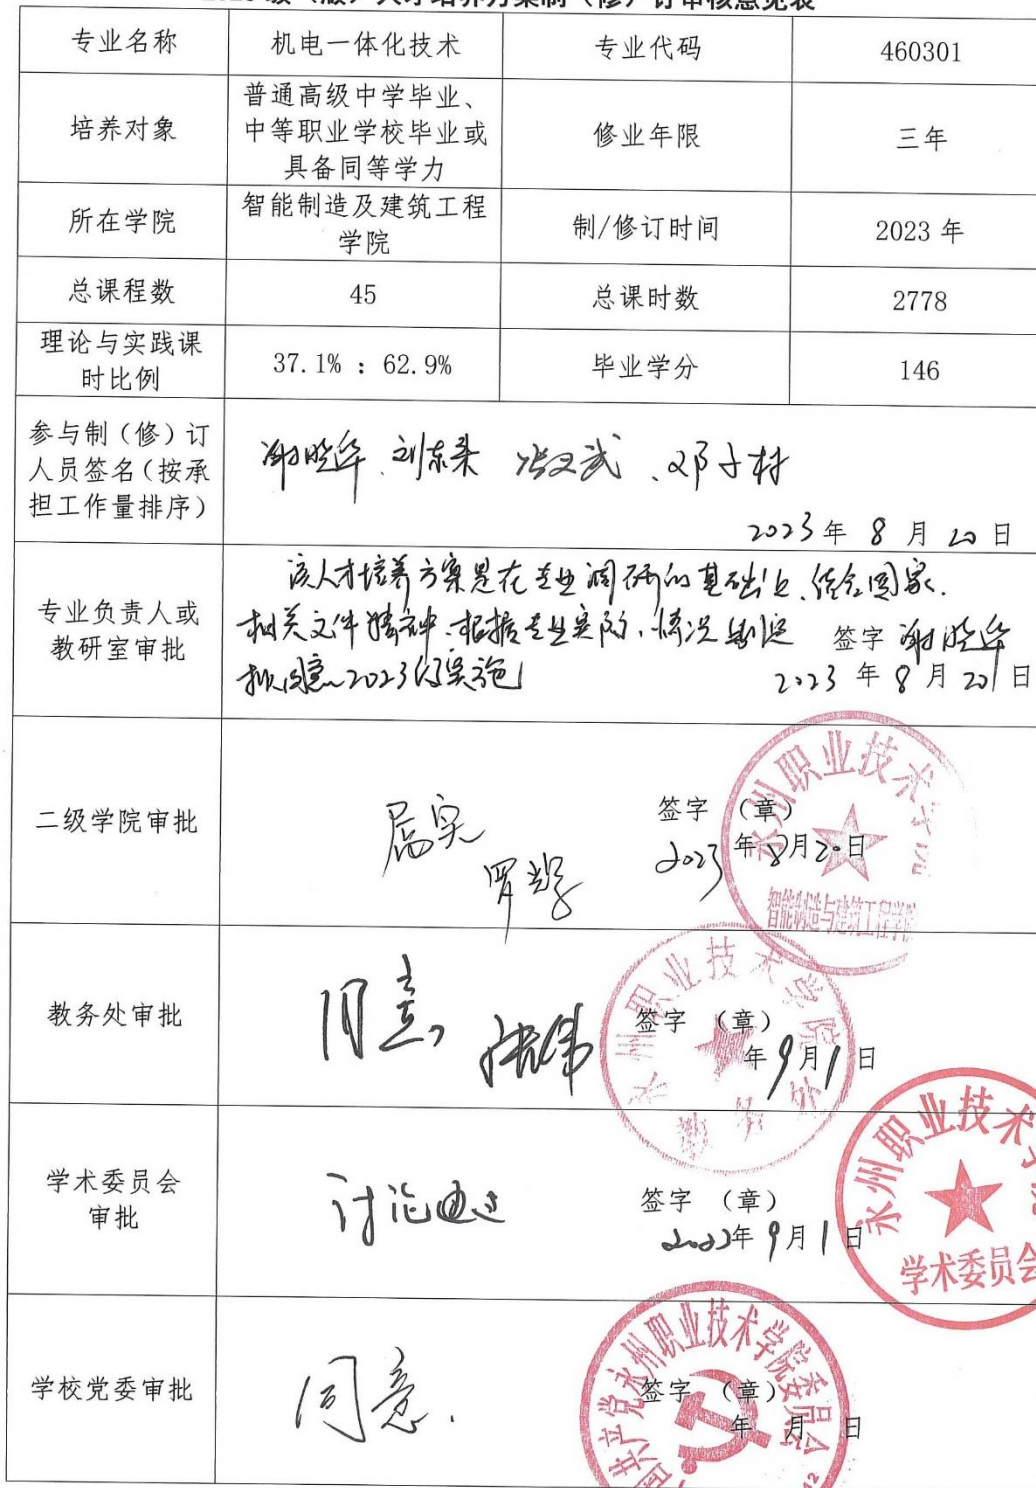 级（版）人才培养方案制（修）订审核意见表
专业名称 机电一体化技术 专业代码 460301
培养对象 普通高级中学毕业、
中等职业学校毕业或
具备同等学力 修业年限 三年
所在学院 智能制造及建筑工程
学院 制/修订时间 2023 年
总课程数 45 总课时数 2778
理论与实践课
时比例 37.1% ：62.9% 毕业学分 146
参与制（修）订
人员签名（按承
担工作量排序）
谢晓华、邓子材
2023年 8 月 20 日
专业负责人或
教研室审批
该人才培养方案是在专业调研的基础上、结合国家
相关文件精神、根据专业实际情况制定
拟同意2023级实施 签字 谢晓华
2023 年 8 月 20 日
二级学院审批
属实
签字 （章）
2023 年 8月20日
永州职业技术学院
智能制造与建筑工程学院
教务处审批
同意 张伟
签字 （章）
年 9月1日
永州职业技术学院
教务处
学术委员会
审批
讨论通过
签字 （章）
2023年 9月 1 日
永州职业技术学
学术委员会
学校党委审批
同意.
签字 （章）
年 月 日
国共产党永州职业技术学院委员会